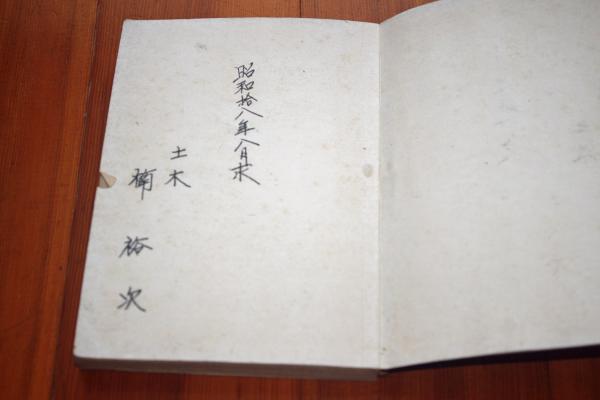 昭和拾八年八月求
土木
楠裕次